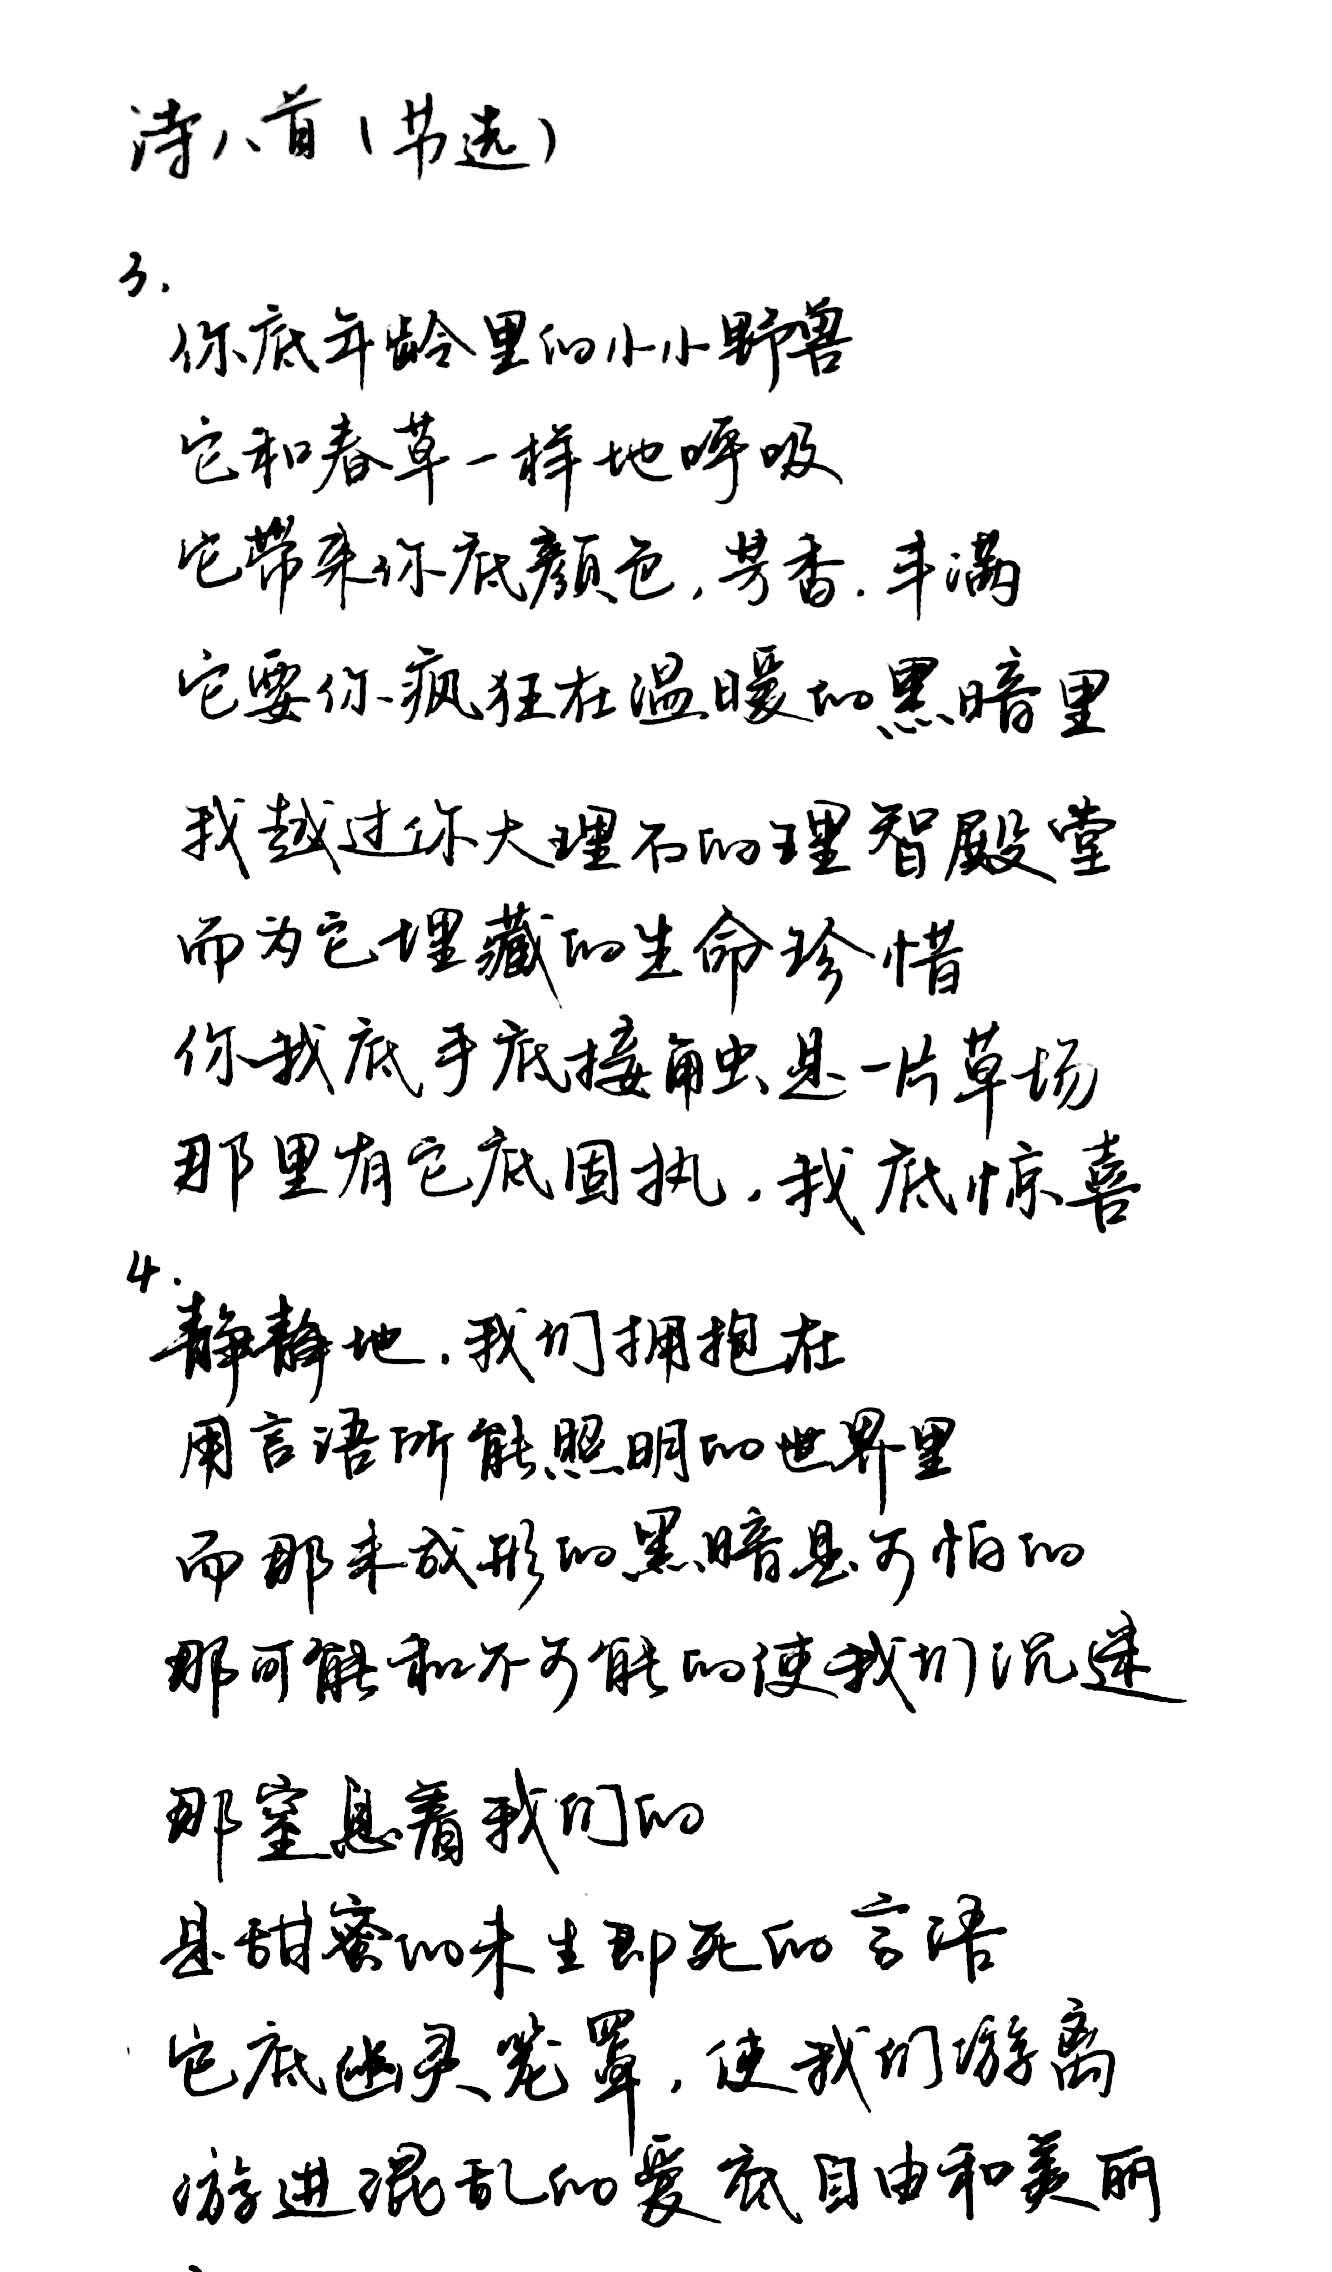 诗八首（节选）
3.
你底年龄里的小小野兽
它和春草一样地呼吸
它带来你底颜色，芳香，丰满
它要你疯狂在温暖的黑暗里
我越过你大理石的理智殿堂
而为它埋藏的生命珍惜
你我底手底接触是一片草场
那里有它底固执，我底惊喜
4.
静静地，我们拥抱在
用言语所能照明的世界里
而那未成形的黑暗是可怕的
那可能和不可能的使我们沉迷
那窒息着我们的
是甜蜜的未生即死的言语
它底幽灵笼罩，使我们游离
游进混乱的爱底自由和美丽